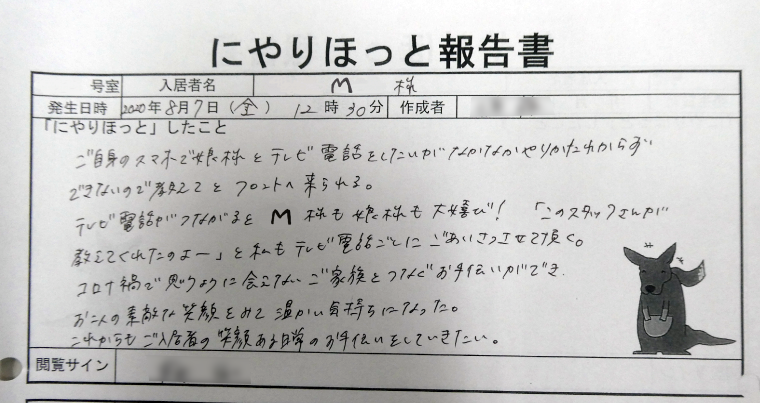 にやりほっと報告書
号室 入居者名 M 様
発生日時 2020年8月7日(金) 12時30分 作成者
「にやりほっと」したこと
ご自身のスマホで娘様とテレビ電話をしたいがなかなかやりかたわからず
できないので教えてとフロントへ来られる。
テレビ電話がつながるとM様も娘様も大喜び! 「このスタッフさんが
教えてくれたのよー」と私もテレビ電話ごしにごあいさつさせて頂く。
コロナ禍で思うように会えないご家族とつなぐお手伝いができ
お二人の素敵な笑顔をみて温かい気持ちになった。
これからもご入居者の笑顔ある日常のお手伝いをしていきたい。
閲覧サイン